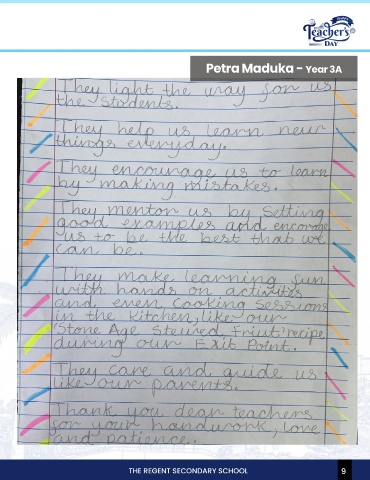 HAPPY
Teacher's
DAY
Petra Maduka - Year 3A
They light the way for us
the students.
They help us learn new
things everyday.
They encourage us to learn
by making mistakes.
They mentor us by setting
good examples and encorage
us to be the best that we
can be.
They make learning fun
with hands on activites
and, even, cooking sessions
in the kitchen, like our
Stone Age Stewed Friut recipe
during our Exit Point.
They care and guide us
like our parents.
Thank you dear teachers
for your handwork, love
and patience.
THE REGENT SECONDARY SCHOOL
9